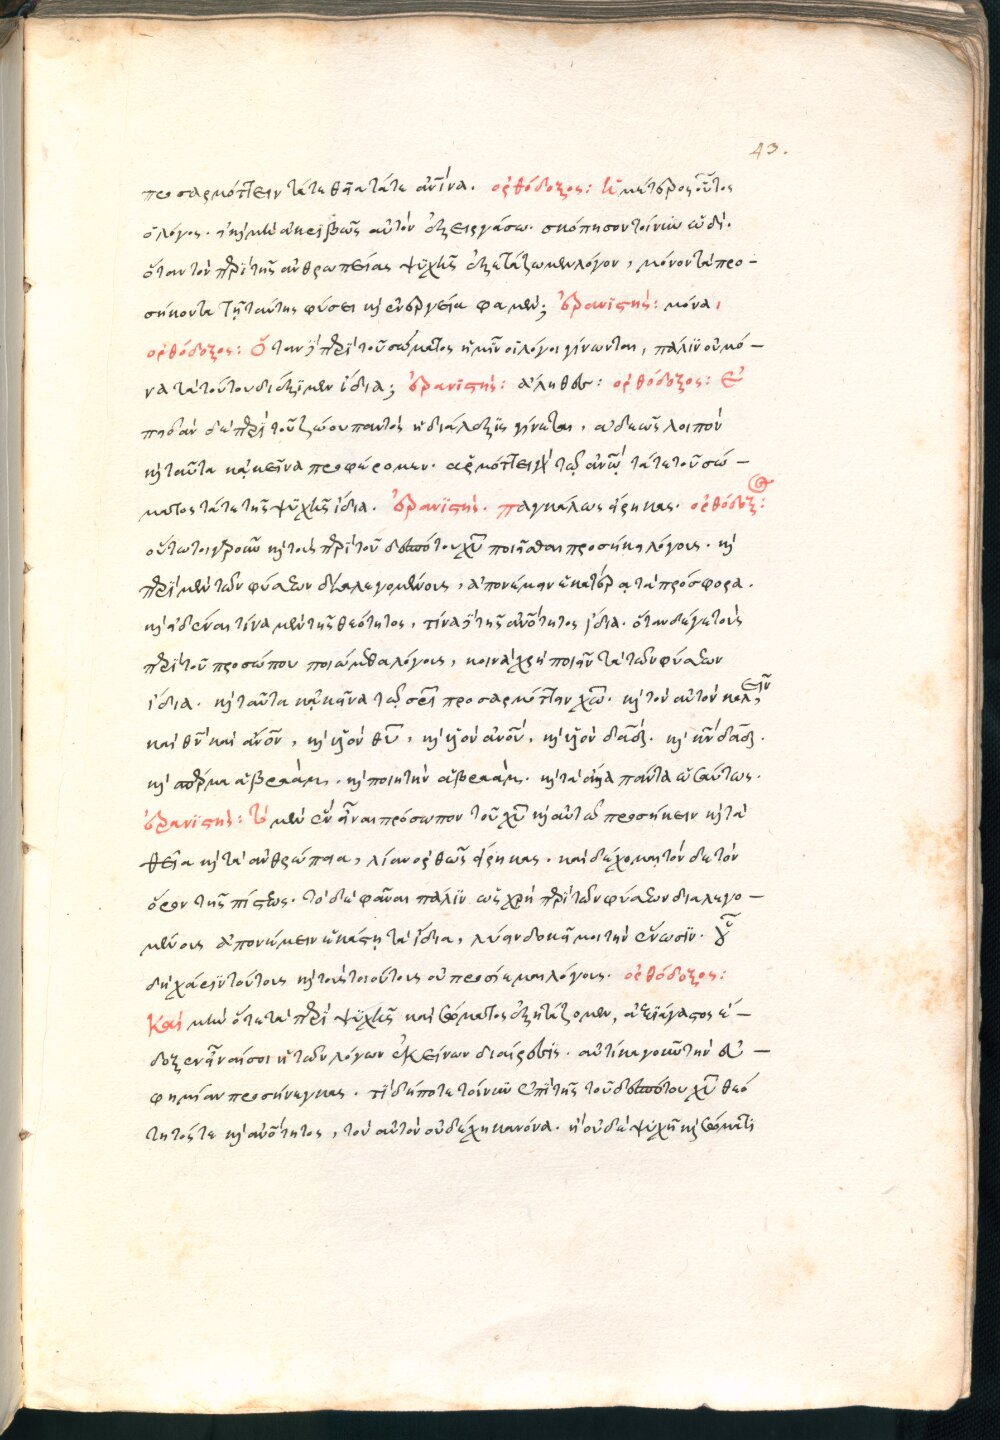 43.
προσαρμόττειν τά τε θεῖα τά τε ἀν̅ινα. ὀρθόδοξος: Ἡμέτερος οὗτος
ὁ λόγος. καὶ μὴν ἀκριβῶς αὐτὸν ἐξειργάσω. σκόπησον τοίνυν ὡδί.
ὅταν τὸν περὶ τῆς ἀνθρωπείας ψυχῆς ἐξετάζωμεν λόγον, μόνον τὰ προ-
σήκοντα τῇ ταύτης φύσει καὶ ἐνεργείᾳ φαμέν; ἐρανιστής: μόνα.
ὀρθόδοξος: Ὅταν δὲ περὶ τοῦ σώματος ἡμῖν οἱ λόγοι γίνωνται, πάλιν οὐ μό-
να τὰ τούτου διέξιμεν ἴδια; ἐρανιστής: ἀληθῶς: ὀρθόδοξος: Ἐ
πειδὰν δὲ περὶ τοῦ ζώου παντὸς ἡ διάλεξις γίνεται, ἀδεῶς λοιπὸν
καὶ ταῦτα κἀκεῖνα προφέρομεν. ἁρμόττει γὰρ τῷ ἀν̅ω τά τε τοῦ σώ-
ματος τά τε τῆς ψυχῆς ἴδια. ἐρανιστής. παγκάλως εἴρηκας. ὀρθόδοξος:
οὕτω τοιγαροῦν καὶ τοὺς περὶ τοῦ δεσπότου χ̅υ ποιεῖσθαι προσήκει λόγους. καὶ
περὶ μὲν τῶν φύσεων διαλεγομένους, ἀπονέμειν ἑκατέρᾳ τὰ πρόσφορα.
καὶ εἰδέναι τίνα μὲν τῆς θεότητος, τίνα δὲ τῆς ἀν̅ότητος ἴδια. ὅταν δέ γε τοὺς
περὶ τοῦ προσώπου ποιώμεθα λόγους, κοινὰ χρὴ ποιεῖν τὰ τῶν φύσεων
ἴδια. καὶ ταῦτα κἀκεῖνα τῷ σ̅ρι προσαρμόττειν χ̅ω. καὶ τὸν αὐτὸν καλεῖν
καὶ θ̅ν καὶ ἄν̅ον, καὶ υἱὸν θ̅υ, καὶ υἱὸν ἀν̅ου, καὶ υἱὸν δα̅δ. καὶ κ̅ν δα̅δ.
καὶ σπέρμα ἀβραάμ. καὶ ποιητὴν ἀβραάμ. καὶ τὰ ἄλλα πάντα ὡσαύτως.
ἐρανιστής: Τὸ μὲν ἓν εἶναι πρόσωπον τοῦ χ̅υ καὶ αὐτῷ προσήκειν καὶ τὰ
θεῖα καὶ τὰ ἀνθρώπεια, λίαν ὀρθῶς εἴρηκας. καὶ δέχομαι τόνδε τὸν
ὅρον τῆς πίστεως. τὸ δὲ φάναι πάλιν ὡς χρὴ περὶ τῶν φύσεων διαλεγο-
μένους ἀπονέμειν ἑκάστῃ τὰ ἴδια, λύειν δοκεῖ μοι τὴν ἕνωσιν. οὗ
δὴ χάριν τούτους καὶ τοὺς τοιούτους οὐ προσίεμαι λόγους. ὀρθόδοξος:
Καὶ μὴν ὅτε τὰ περὶ ψυχῆς καὶ σώματος ἐξητάζομεν, ἀξιάγαστος ἔ-
δοξεν εἶναί σοι ἡ τῶν λόγων ἐκείνων διαίρεσις. αὐτίκα γοῦν τὴν εὐ-
φημίαν προσήνεγκας. τί δήποτε τοίνυν ἐπὶ τῆς τοῦ δεσπότου χ̅υ θεό
τητός τε καὶ ἀν̅ότητος, τὸν αὐτὸν οὐ δέχῃ κανόνα. ἢ οὐδὲ ψυχῇ καὶ σώματι